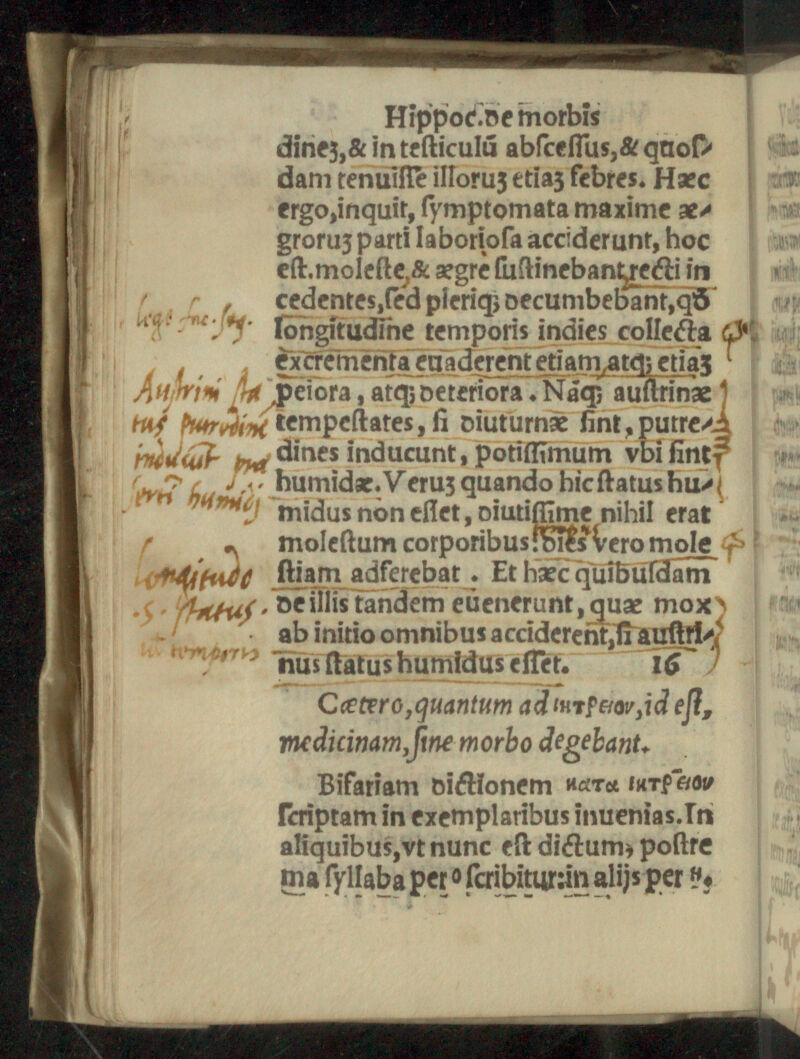 Hippoc. de morbis
dineʒ, & in testiculū abscessus, & quos⸗
dam tenuisse illoruʒ etiaʒ febres. Hæc
ergo, inquit, symptomata maxime æ⸗
groruʒ parti laboriosa acciderunt, hoc
est. moleste, & ægre sustinebant, recti in
cedentes, sed pleriqʒ decumbebant, qđ
longitudine temporis indies collecta
excrementa euaderent etiam, atqʒ etiaʒ
peiora, atqʒ deteriora. Nāqʒ austrinæ
tempestates, si diuturnæ sint, putre⸗
dines inducunt, potissimum vbi sint
humidæ. Veruʒ quando hic status hu⸗
midus non esset, diutissime nihil erat
molestum corporibus: dies vero mole
stiam adferebat. Et hæc quibusdam
de illis tandem euenerunt, quæ mox
ab initio omnibus acciderent, si austri⸗
nus status humidus esset. 16
Cætero, quantum ad ἰητρεῖον, id est,
medicinam, sine morbo degebant.
Bifariam dictionem κατα ἰητρεῖον
scriptam in exemplaribus inuenias. In
aliquibus, vt nunc est dictum, postre
ma syllaba per ο scribitur: in alijs per η.
Austrini sta
tus putredinē
inducūt
humidi
Longitudo
.s. status.
temporis